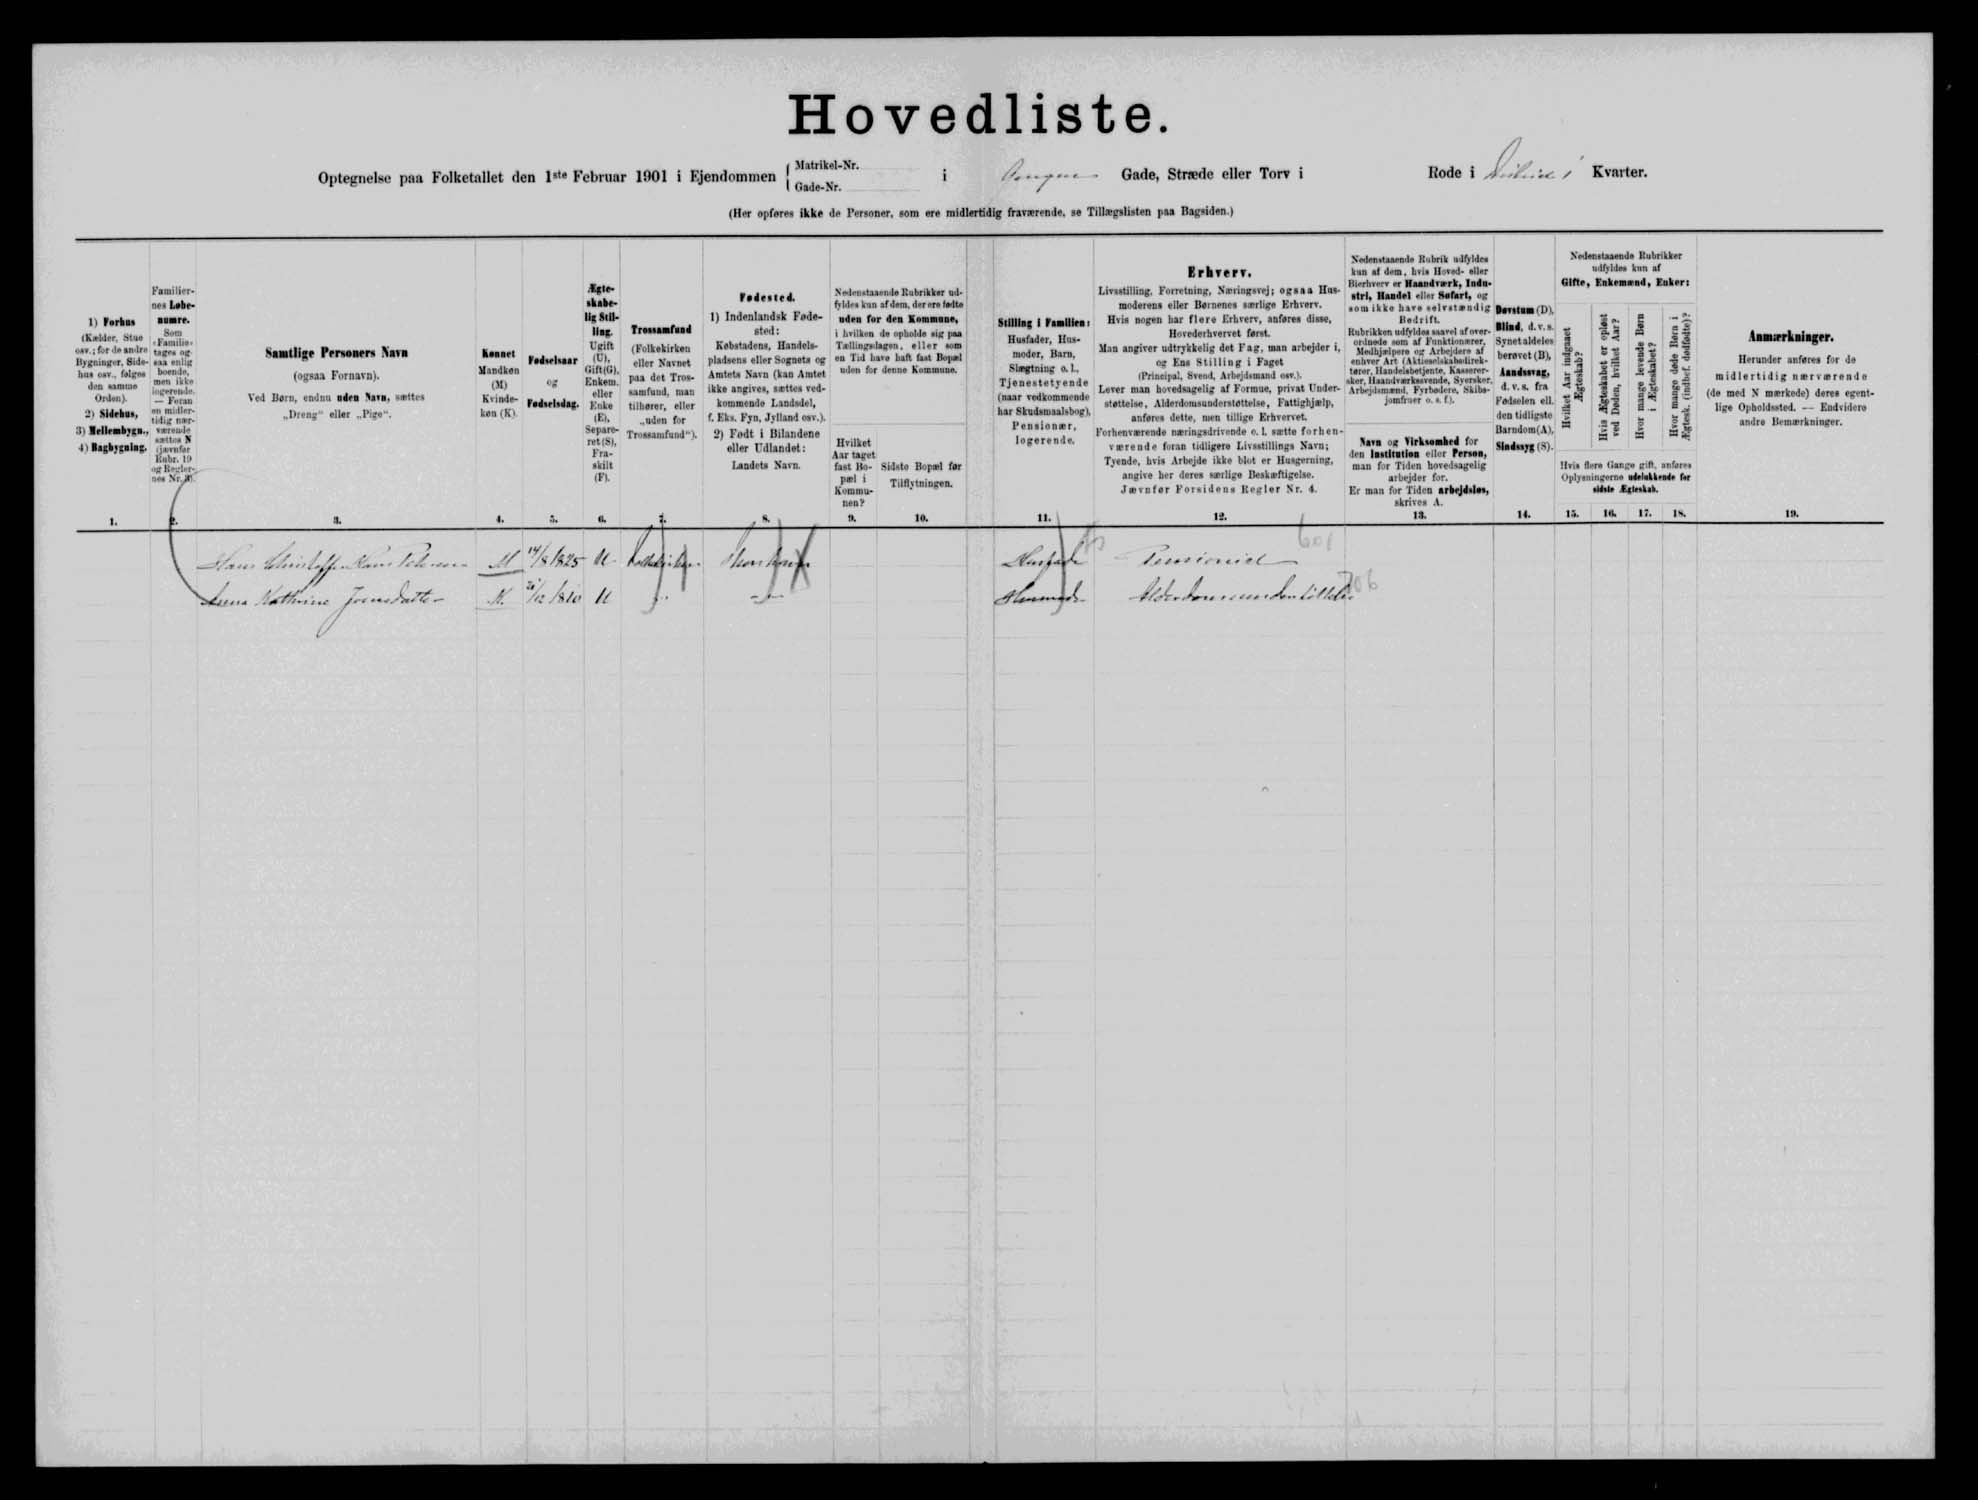 Hovedliste.
Optegnelse paa Folketallet den 1ste Februar 1901 i Ejendommen { Matrikel-Nr. Gade-Nr. i Gade, Stræde eller Torv i Rode i Distrikt 1 Kvarter.
(Her opføres ikke de Personer, som ere midlertidig fraværende, se Tillægslisten paa Bagsiden.)
1) Forhus
(Kælder, Stue
osv.; for de andre
Bygninger, Side-
hus osv., følges
den samme
Orden).
2) Sidehus,
3) Mellembygn.,
4) Bagbygning.
Familier-
nes Løbe-
numre.
Som
„Familie“
tages og-
saa enlig
boende,
men ikke
logerende.
— Foran
en midler-
tidig nær-
værende
sættes N
(jævnfør
Rubr. 19
og Regler-
nes Nr. 3).
Samtlige Personers Navn
(ogsaa Fornavn).
Ved Børn, endnu uden Navn, sættes
„Dreng“ eller „Pige“.
Kønnet
Mandkøn
(M)
Kvinde-
køn (K).
Fødselsaar
og
Fødselsdag.
Ægte-
skabe-
lig Stil-
ling.
Ugift
(U),
Gift(G),
Enkem.
eller
Enke
(E),
Separe-
ret (S),
Fra-
skilt
(F).
Trossamfund
(Folkekirken
eller Navnet
paa det Tros-
samfund, man
tilhører, eller
„uden for
Trossamfund“).
Fødested.
1) Indenlandsk Føde-
sted:
Købstadens, Handels-
pladsens eller Sognets og
Amtets Navn (kan Amtet
ikke angives, sættes ved-
kommende Landsdel,
f. Eks. Fyn, Jylland osv.).
2) Født i Bilandene
eller Udlandet:
Landets Navn.
Nedenstaaende Rubrikker ud-
fyldes kun af dem, der ere fødte
uden for den Kommune,
i hvilken de opholde sig paa
Tællingsdagen, eller som
en Tid have haft fast Bopæl
uden for denne Kommune.
Hvilket
Aar taget
fast Bo-
pæl i
Kommu-
nen?
Sidste Bopæl før
Tilflytningen.
Stilling i Familien:
Husfader, Hus-
moder, Barn,
Slægtning o. l.,
Tjenestetyende
(naar vedkommende
har Skudsmaalsbog),
Pensionær,
logerende.
Erhverv.
Livsstilling, Forretning, Næringsvej; ogsaa Hus-
moderens eller Børnenes særlige Erhverv.
Hvis nogen har flere Erhverv, anføres disse,
Hovederhvervet først.
Man angiver udtrykkelig det Fag, man arbejder i,
og Ens Stilling i Faget
(Principal, Svend, Arbejdsmand osv.).
Lever man hovedsagelig af Formue, privat Under-
støttelse, Alderdomsunderstøttelse, Fattighjælp,
anføres dette, men tillige Erhvervet.
Forhenværende næringsdrivende o. l. sætte forhen-
værende foran tidligere Livsstillings Navn;
Tyende, hvis Arbejde ikke blot er Husgerning,
angive her deres særlige Beskæftigelse.
Jævnfør Forsidens Regler Nr. 4.
Nedenstaaende Rubrik udfyldes
kun af dem, hvis Hoved- eller
Bierhverv er Haandværk, Indu-
stri, Handel eller Søfart, og
som ikke have selvstændig
Bedrift.
Rubrikken udfyldes saavel af over-
ordnede som af Funktionærer,
Medhjælpere og Arbejdere af
enhver Art (Aktieselskabsdirek-
tører, Handelsbetjente, Kasserer-
sker, Haandværkssvende, Syersker,
Arbejdsmænd, Fyrbødere, Skibs-
jomfruer o. s. f.).
Navn og Virksomhed for
den Institution eller Person,
man for Tiden hovedsagelig
arbejder for.
Er man for Tiden arbejdsløs,
skrives A.
Døvstum (D),
Blind, d. v. s.
Synet aldeles
berøvet (B),
Aandssvag,
d. v. s. fra
Fødselen ell.
den tidligste
Barndom(A),
Sindssyg (S).
Nedenstaaende Rubrikker
udfyldes kun af
Gifte, Enkemænd, Enker:
Hvilket Aar indgaaet
Ægteskab?
Hvis Ægteskabet er opløst
ved Døden, hvilket Aar?
Hvor mange levende Børn
i Ægteskabet?
Hvor mange døde Børn i
Ægtesk. (indbef. dødfødte)?
Hvis flere Gange gift, anføres
Oplysningerne udelukkende for
sidste Ægteskab.
Anmærkninger.
Herunder anføres for de
midlertidig nærværende
(de med N mærkede) deres egent-
lige Opholdssted. — Endvidere
andre Bemærkninger.
1. 2. 3. 4. 5. 6. 7. 8. 9. 10. 11. 12. 13. 14. 15. 16. 17. 18. 19.
Hans Christoffer Hans Petersen M 14/8 1825 U Folkekirken Thorshavn Husfader Pensionist 601
Anna Kathrine Joensdatter K. /12 1810 U " — " — Husmoder Alderdomsunderstøttelse 706